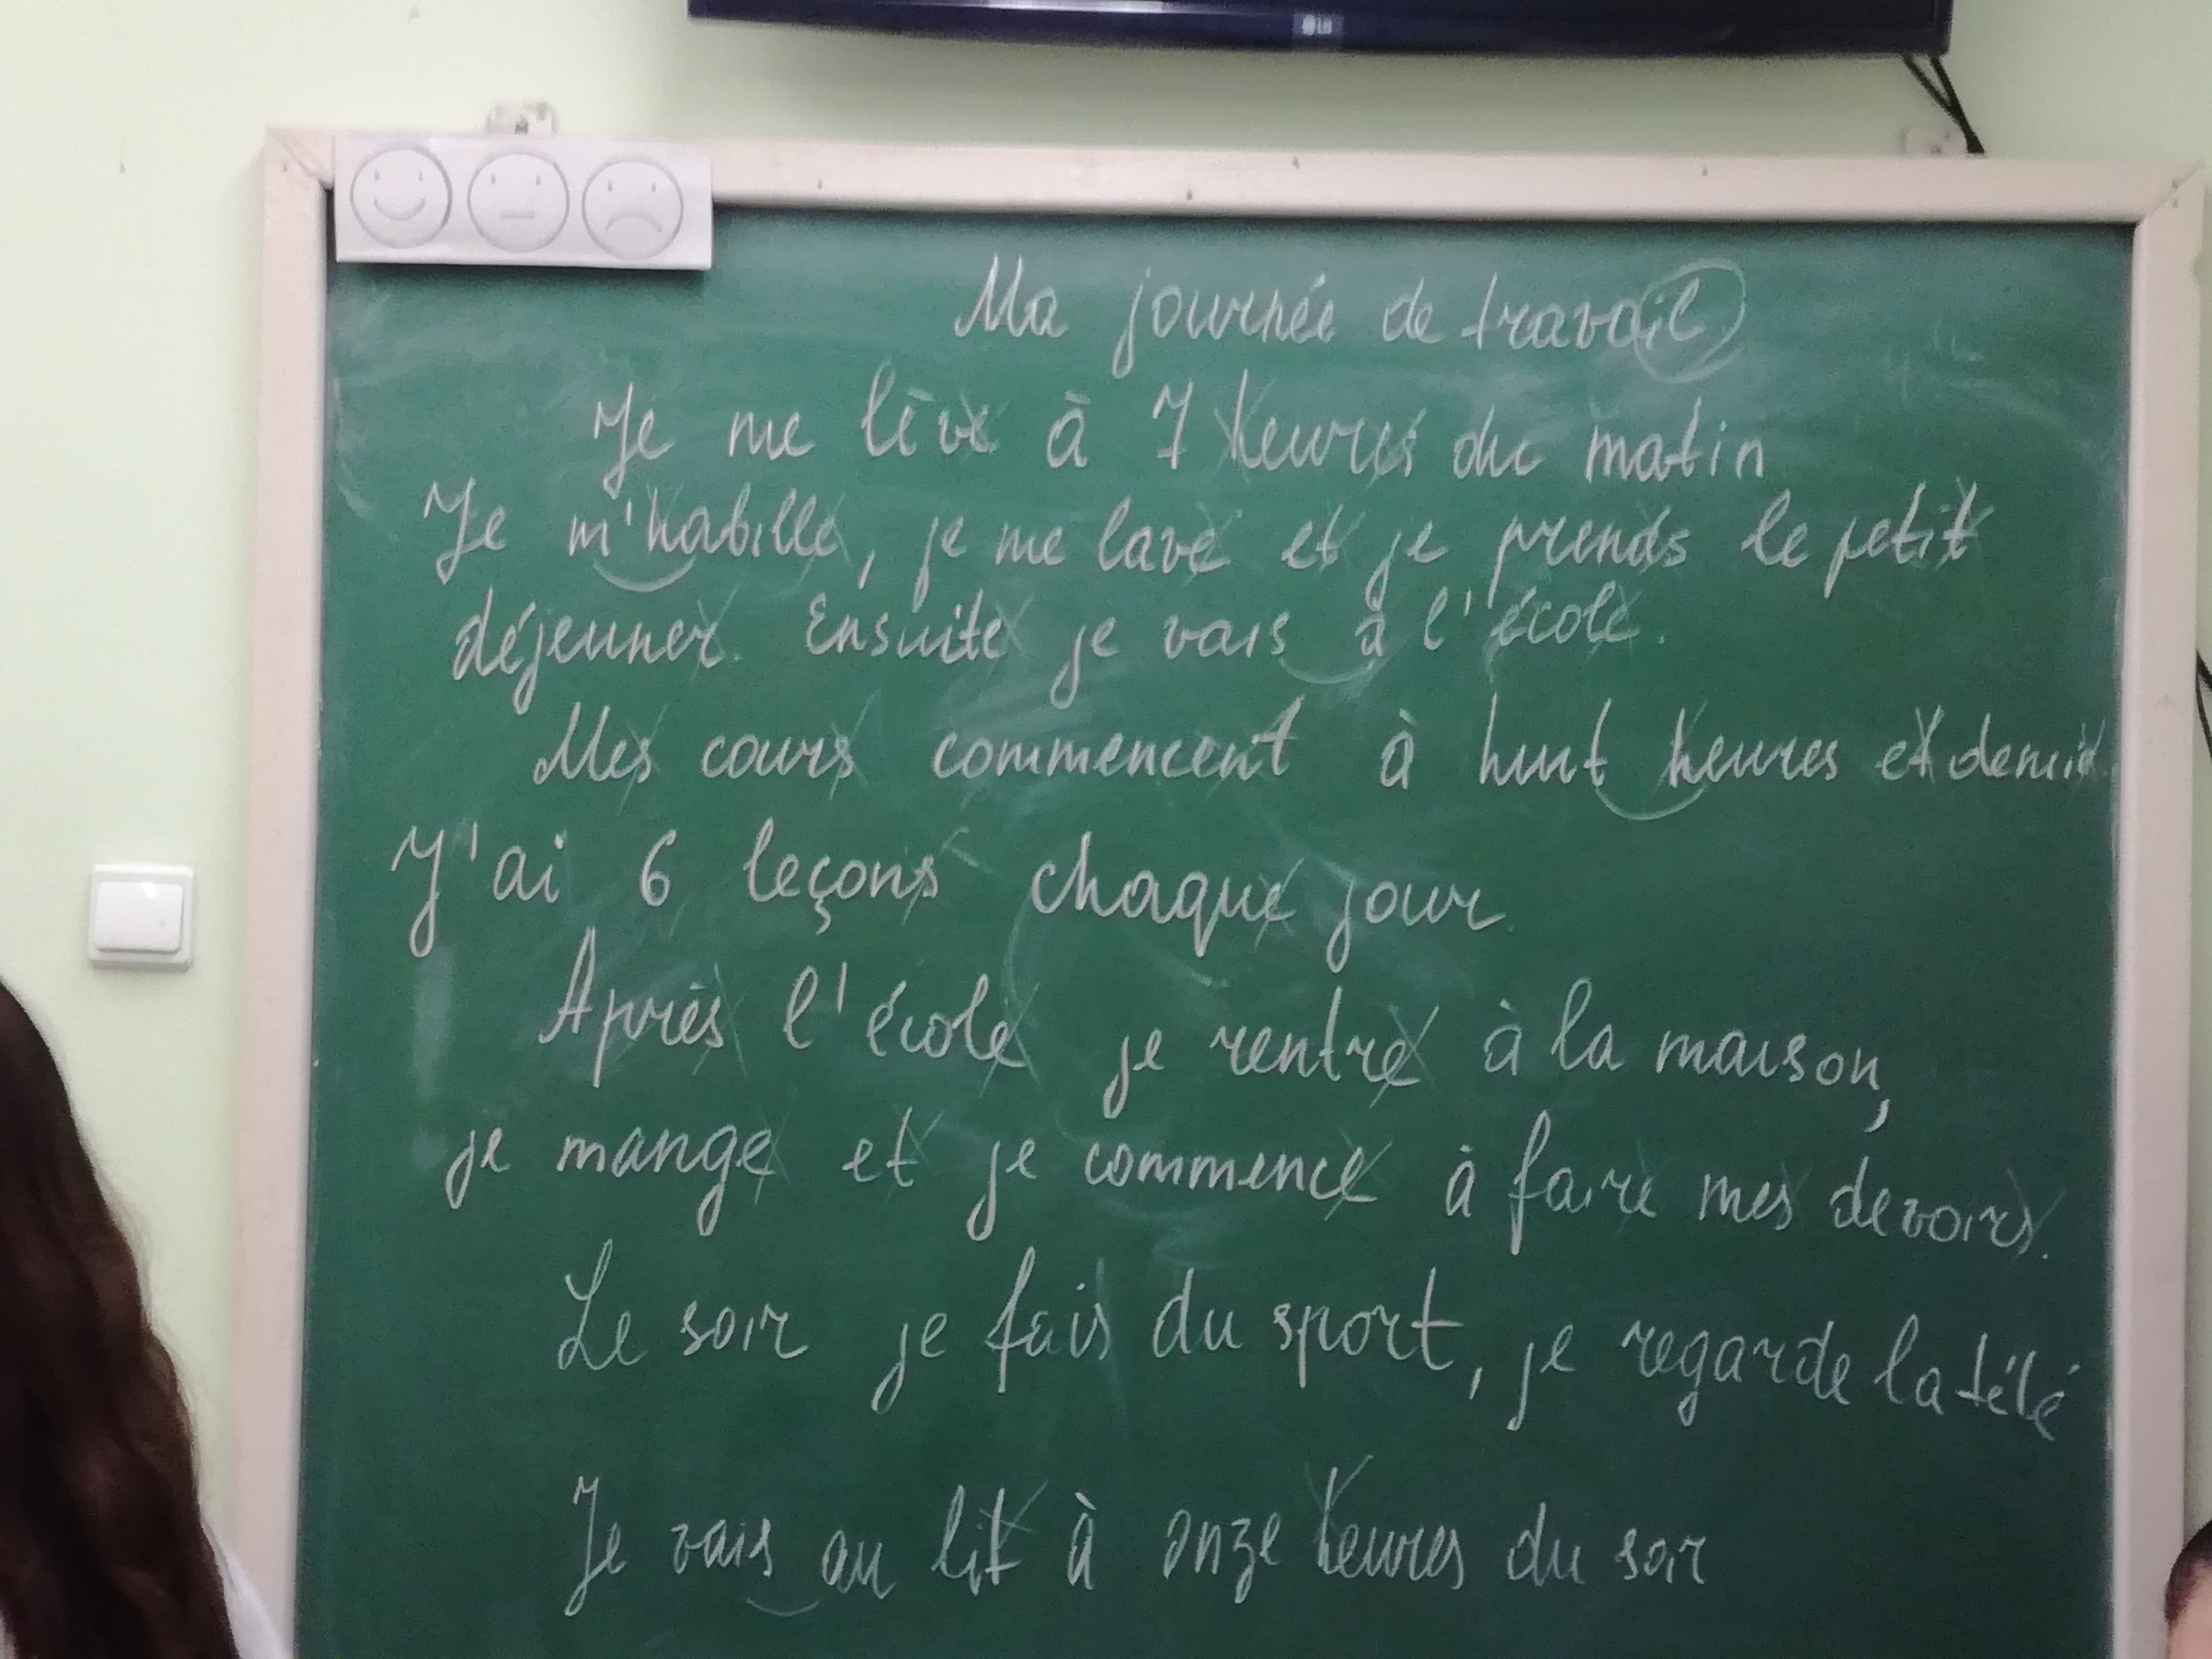 LG
Ma journée de travail
Je me lève à 7 heures du matin
Je m'habille, je me lave et je prends le petit
déjeuner. Ensuite je vais à l'école.
Mes cours commencent à huit heures et demie.
J'ai 6 leçons chaque jour.
Après l'école je rentre à la maison,
je mange et je commence à faire mes devoirs.
Le soir je fais du sport, je regarde la télé
Je vais au lit à onze heures du soir